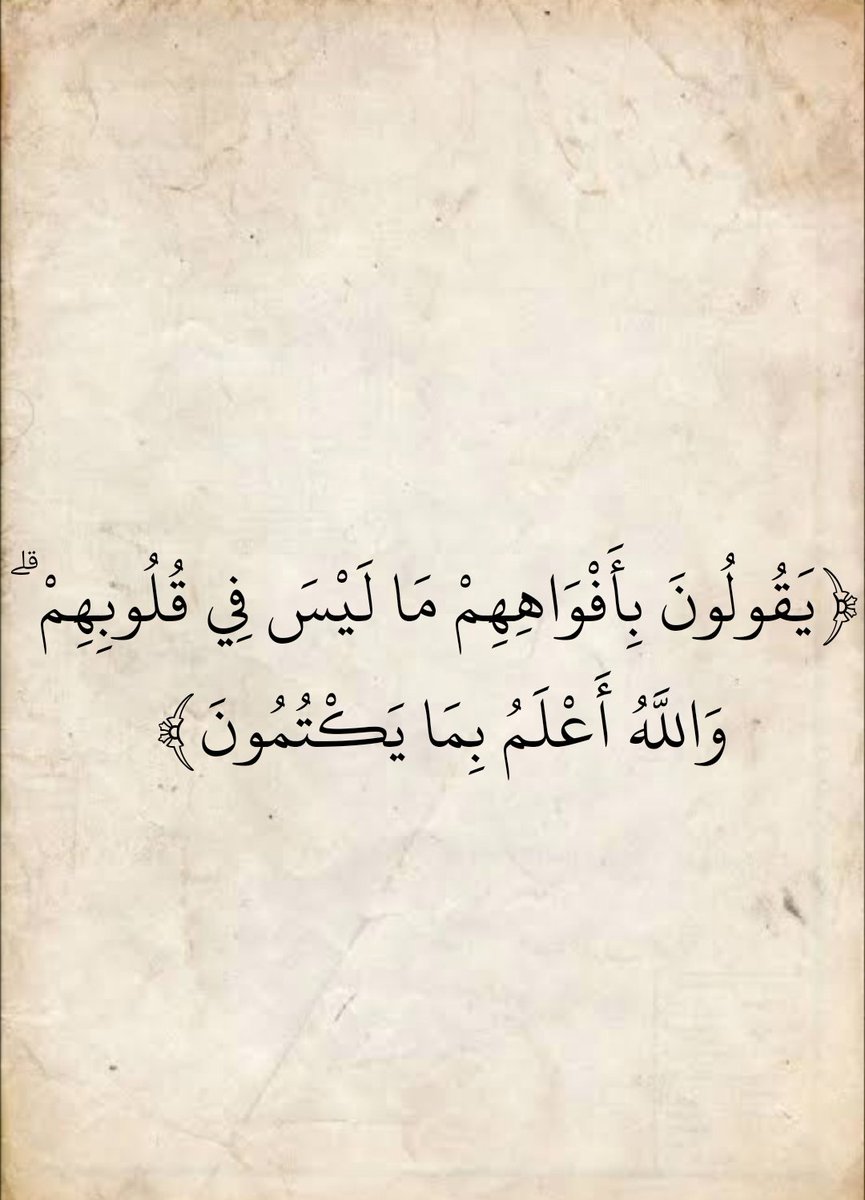 ﴿يَقُولُونَ بِأَفْوَاهِهِمْ مَا لَيْسَ فِي قُلُوبِهِمْ ۗ
وَاللَّهُ أَعْلَمُ بِمَا يَكْتُمُونَ﴾